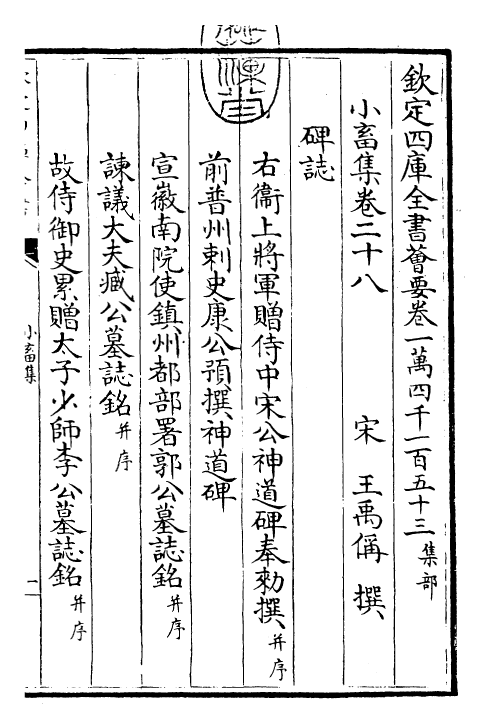 欽定四庫全書薈要卷一萬四千一百五十三集部
小畜集卷二十八　宋　王禹偁　撰
碑誌
右衞上將軍贈侍中宋公神道碑奉勅撰并序
前普州刺史康公預撰神道碑
宣徽南院使鎮州都部署郭公墓誌銘并序
諫議大夫臧公墓誌銘并序
故侍御史累贈太子少師李公墓誌銘并序
小畜集
一